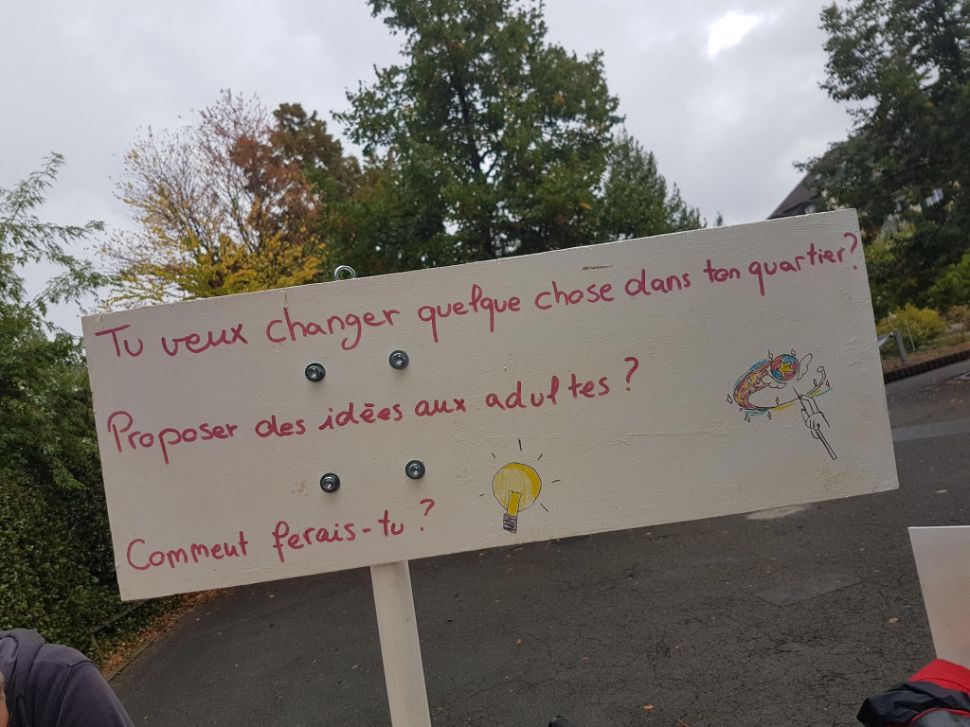 Tu veux changer quelque chose dans ton quartier?
Proposer des idées aux adultes ?
Comment ferais-tu ?